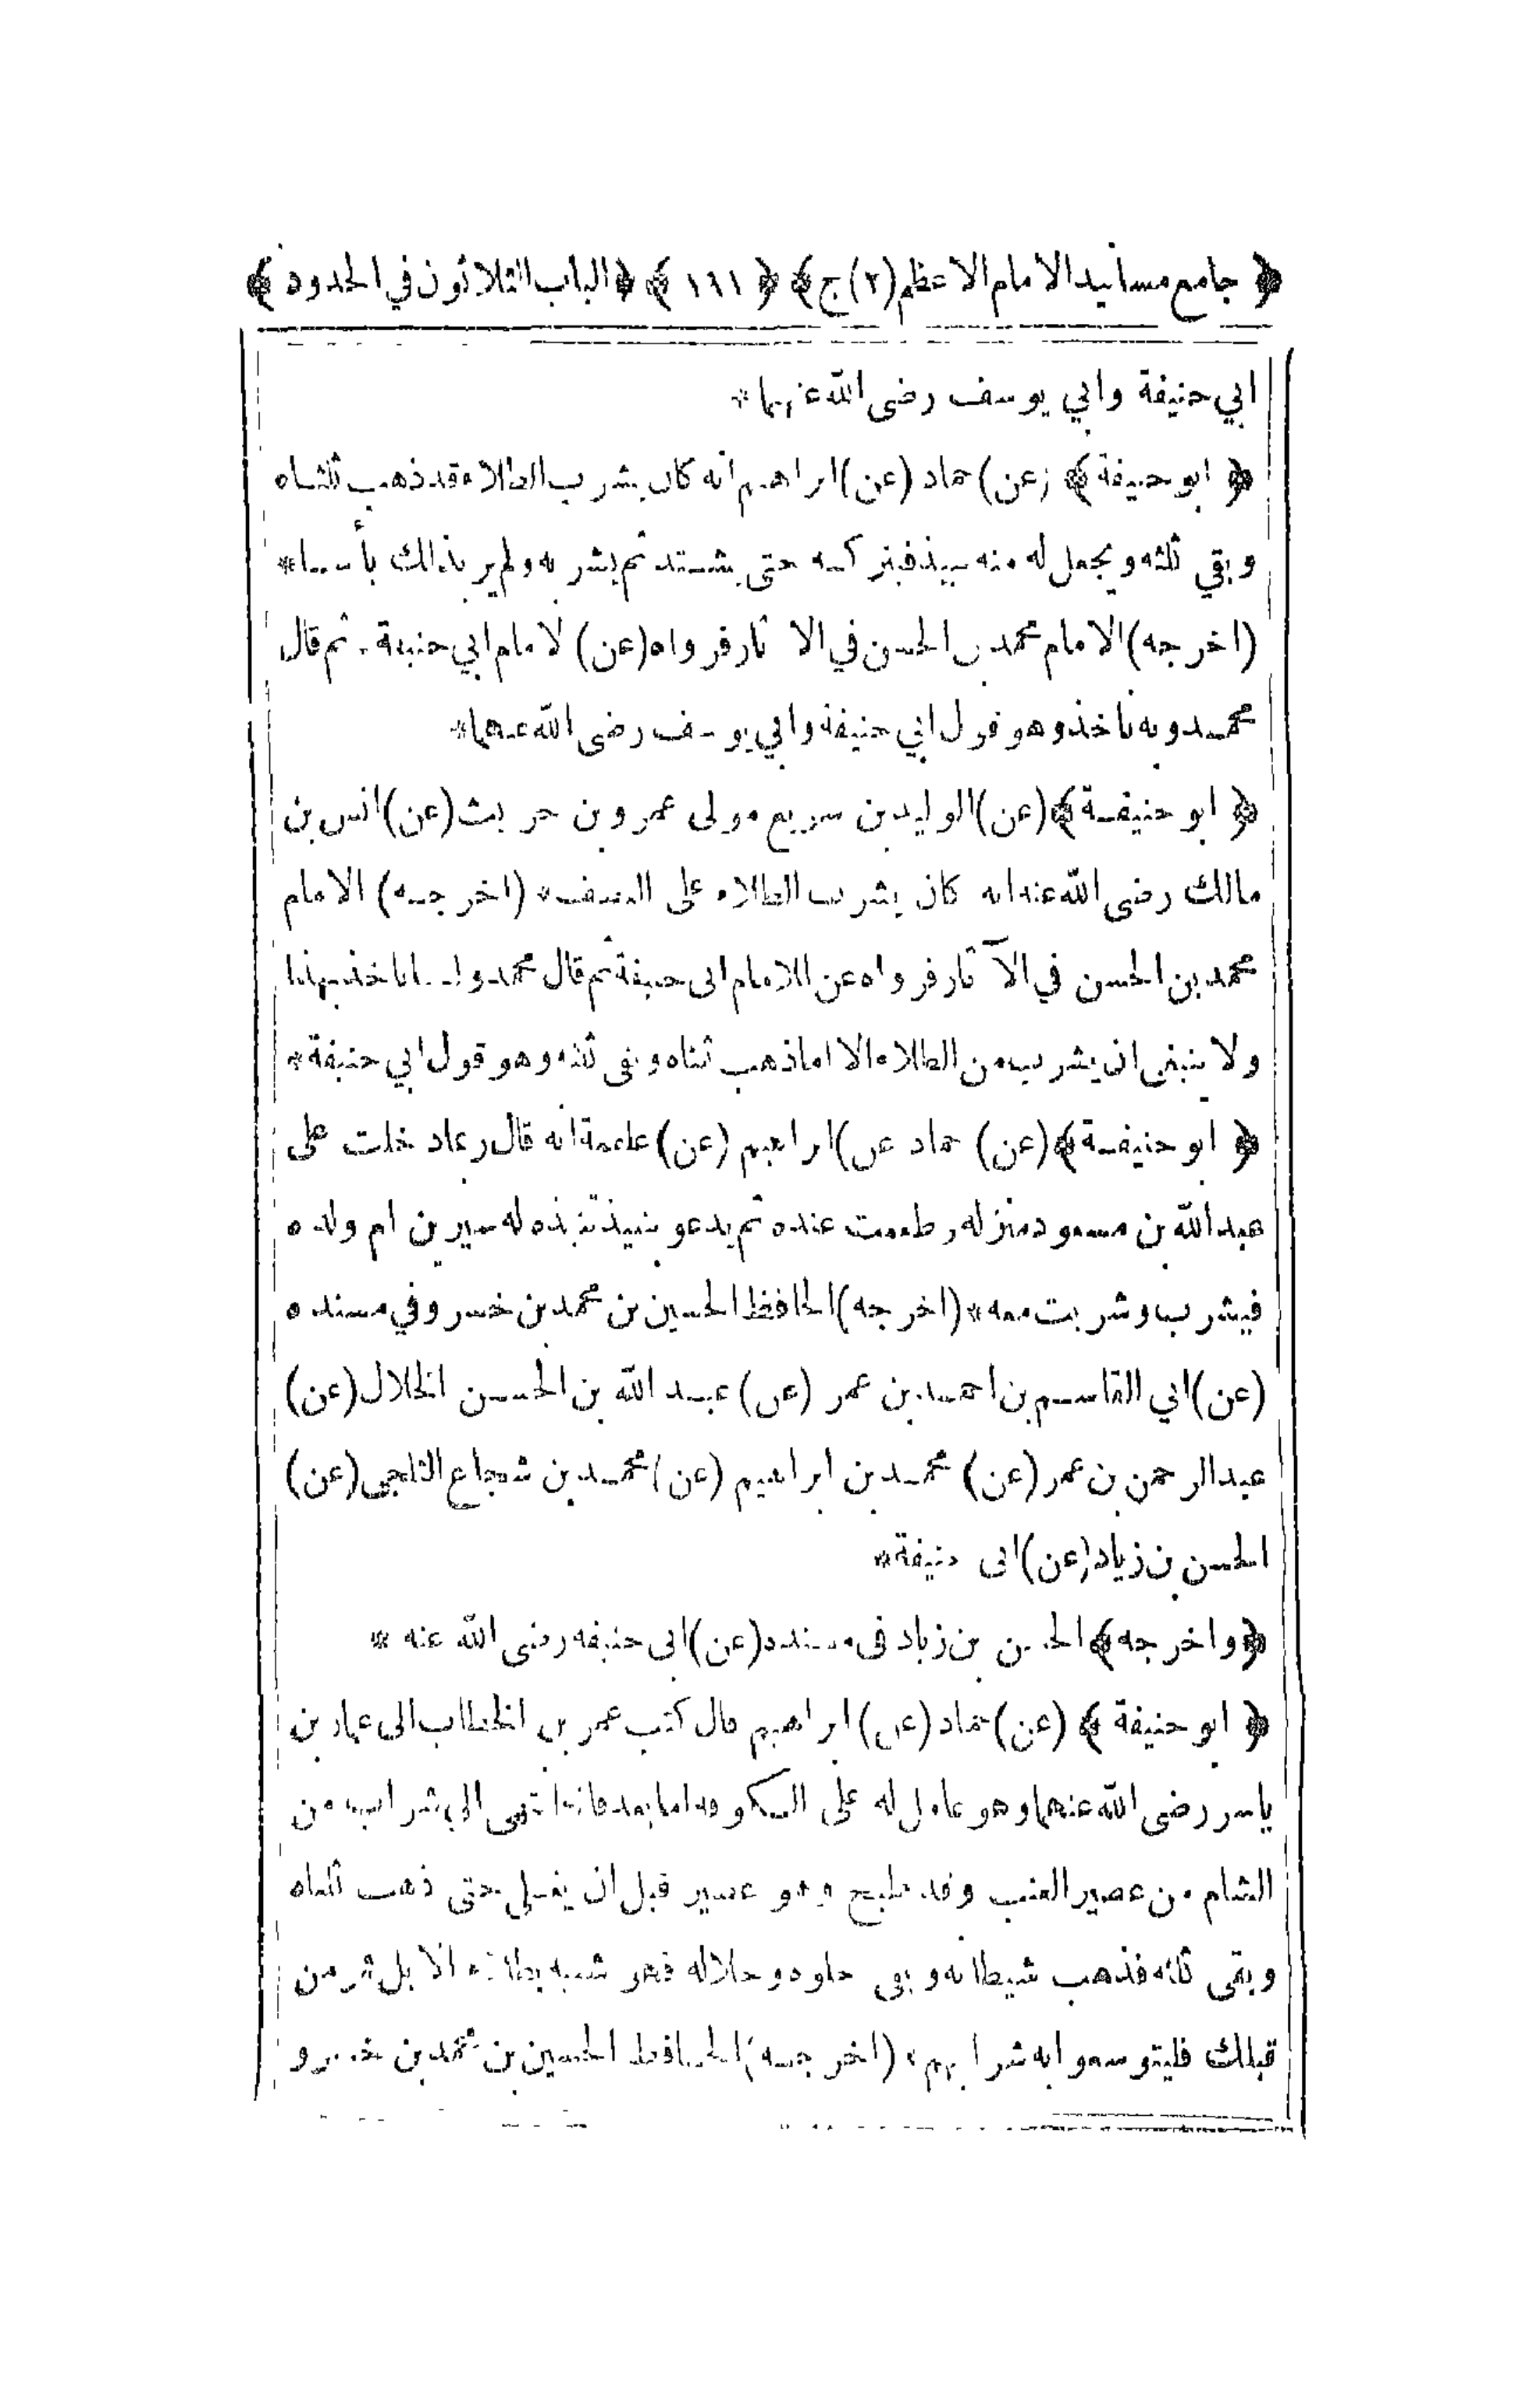 ﴿ جامع مسانيد الامام الاعظم (٢) ج ﴾ ﴿ ١٩١ ﴾ ﴿ الباب الثلاثون في الحدود ﴾
ابي حنيفة وابي يوسف رضى الله عنهما *
﴿ ابو حنيفة ﴾ (عن) حماد (عن) ابراهيم انه كان يشرب الطلاء قد ذهب ثلثاه
وبقي ثلثه ويجعل له منه نبيذ فيتركه حتى يشتد ثم يشربه ولم ير بذلك بأسا *
(اخرجه) الامام محمد بن الحسن في الا ثار فرواه (عن) الامام ابي حنيفة . ثم قال
محمد وبه ناخذ وهو قول ابي حنيفة وابي يوسف رضى الله عنهما *
﴿ ابو حنيفة ﴾ (عن) الوليد بن سريع مولى عمرو بن حريث (عن) انس بن
مالك رضى الله عنه انه كان يشرب الطلاء على النصف * (اخرجه) الامام
محمد بن الحسن في الآثار فرواه عن الامام ابى حنيفة ثم قال محمد ولسنا ناخذ بهذا
ولا ينبغى ان يشرب من الطلاء الا ماذهب ثلثاه وبقى ثلثه وهو قول ابي حنيفة *
﴿ ابو حنيفة ﴾ (عن) حماد (عن) ابراهيم (عن) علقمة انه قال دخلت على
عبد الله بن مسعود منزله وطعمت عنده ثم يدعو بنبيذ تنبذه له سيرين ام ولده
فيشرب وشربت معه * (اخرجه) الحافظ الحسين بن محمد بن خسرو في مسنده
(عن) ابي القاسم بن احمد بن عمر (عن) عبد الله بن الحسن الخلال (عن)
عبد الرحمن بن عمر (عن) محمد بن ابراهيم (عن) محمد بن شجاع الثلجى (عن)
الحسن بن زياد (عن) ابى حنيفة *
﴿ واخرجه ﴾ الحسن بن زياد فى مسنده (عن) ابى حنيفة رضى الله عنه *
﴿ ابو حنيفة ﴾ (عن) حماد (عن) ابراهيم قال كتب عمر بن الخطاب الى عمار بن
ياسر رضى الله عنهما وهو عامل له على الكوفة اما بعد فانه انتهى الي شراب من
الشام من عصير العنب وقد طبخ وهو عصير قبل ان يغلى حتى ذهب ثلثاه
وبقى ثلثه فذهب شيطانه وبقى حلوه وحلاله فهو شبيه بطلاء الابل فمر من
قبلك فليتوسعوا به شرابهم * (اخرجه) الحافظ الحسين بن محمد بن خسرو